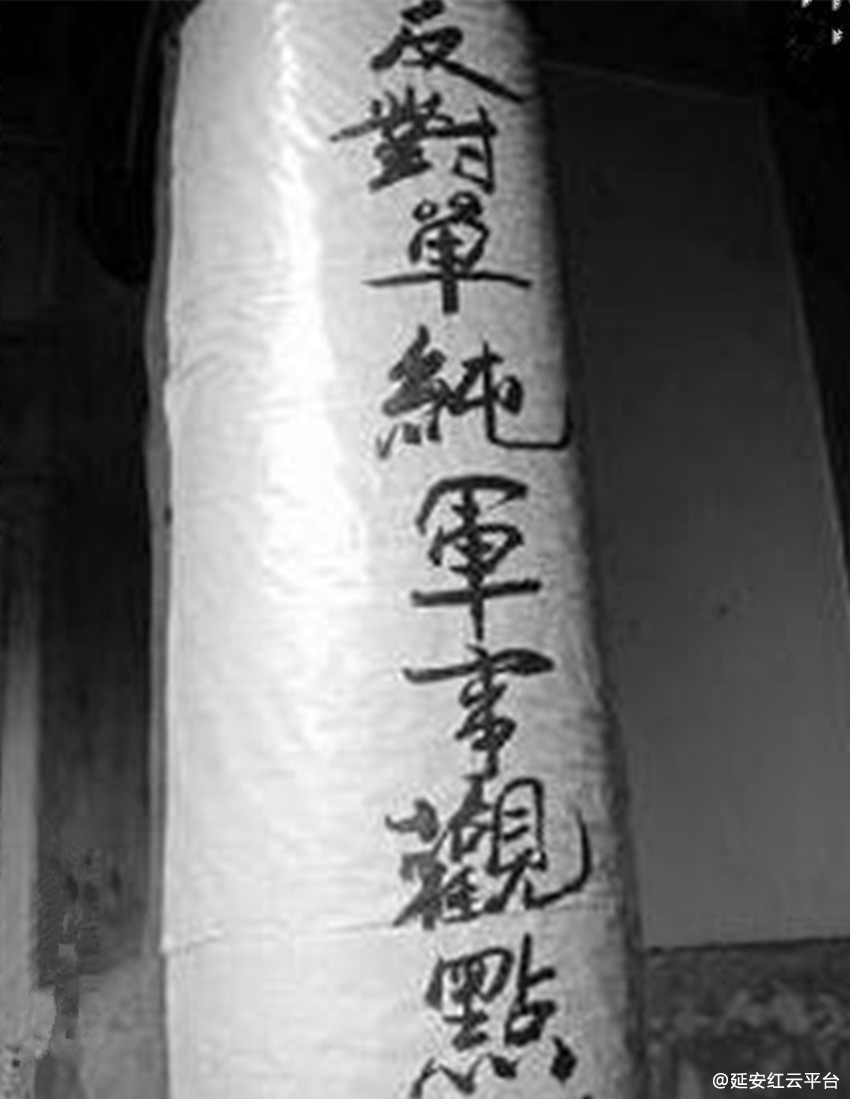 反對單純軍事觀點
@延安红云平台